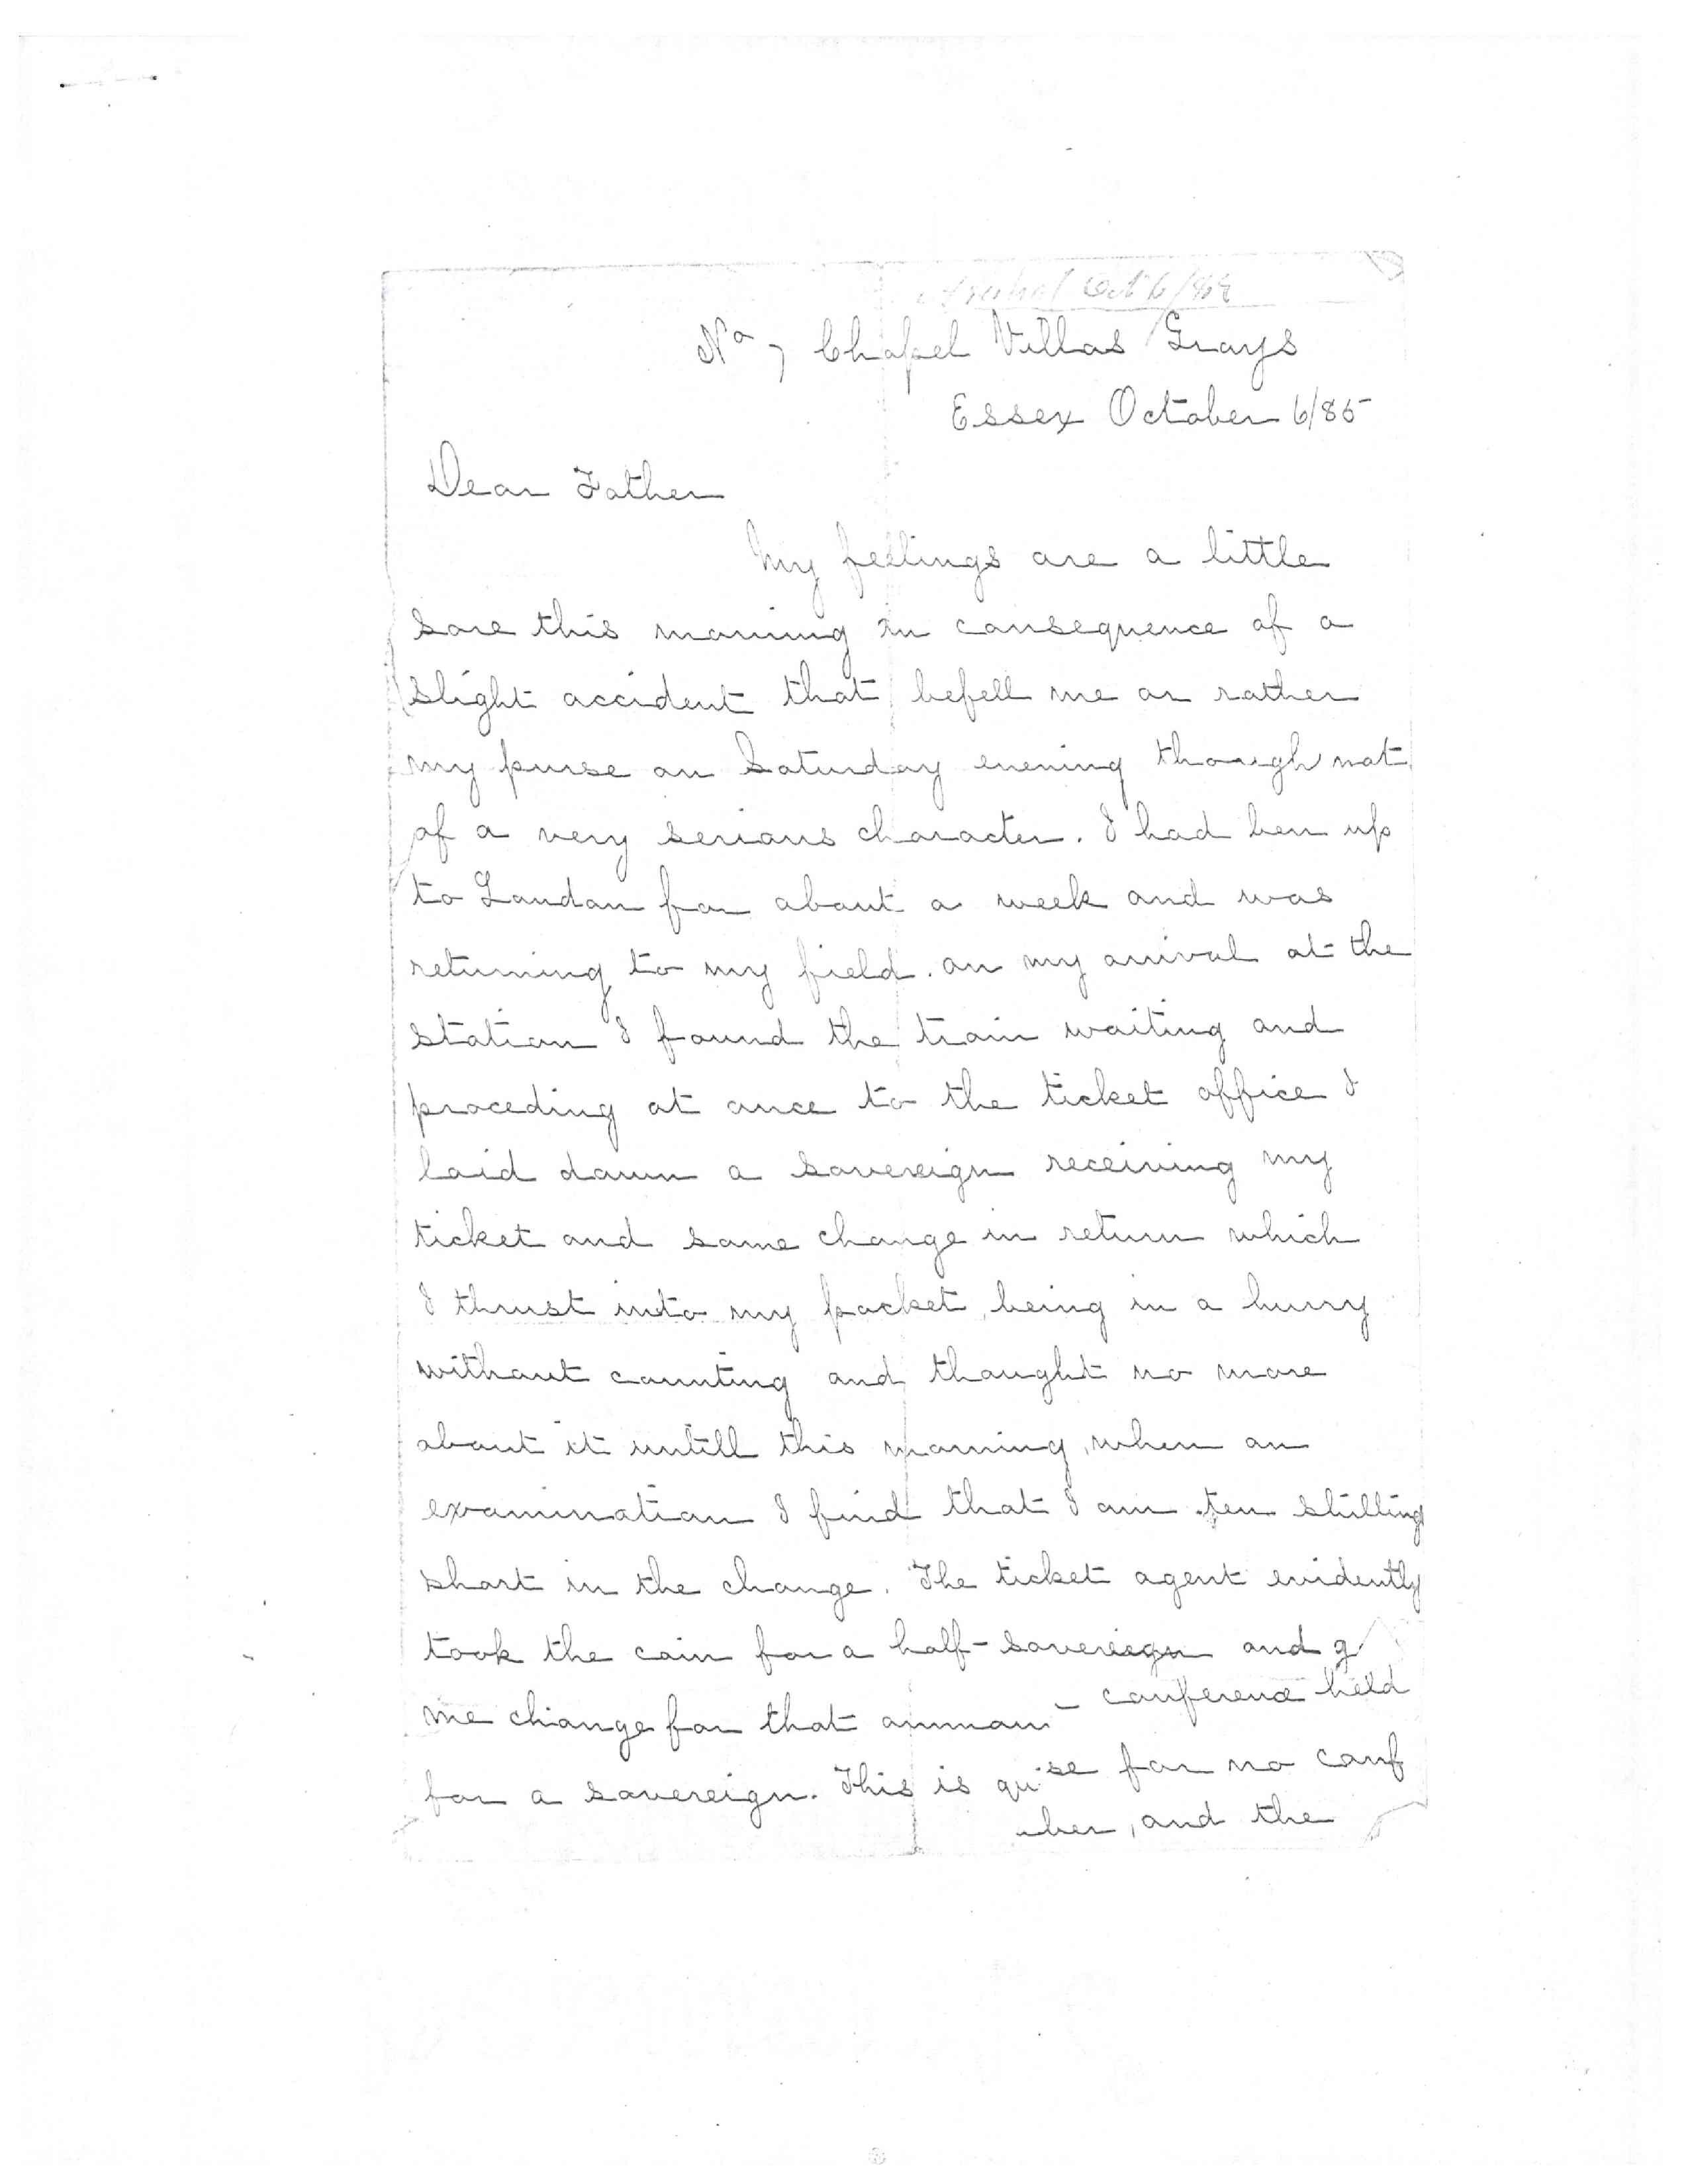 Oct 6/
No 7 Chapel Villas Grays
Essex October 6/85
Dear Father
My feelings are a little
sore this morning in consequence of a
slight accident that befell me or rather
my purse on Saturday evening though not
of a very serious character. I had ben up
to London for about a week and was
returning to my field. on my arrival at the
station I found the train waiting and
proceding at once to the ticket office I
laid down a sovereign receiving my
ticket and some change in return which
I thrust into my pocket, being in a hurry
without counting and thought no more
about it untill this morning, when on
examination I find that I am ten shillings
short in the change. The ticket agent evidently
took the coin for a half-sovereign and g
me change for that ammoun
conference held
for a sovereign. This is qu
se for no conf
ber, and the